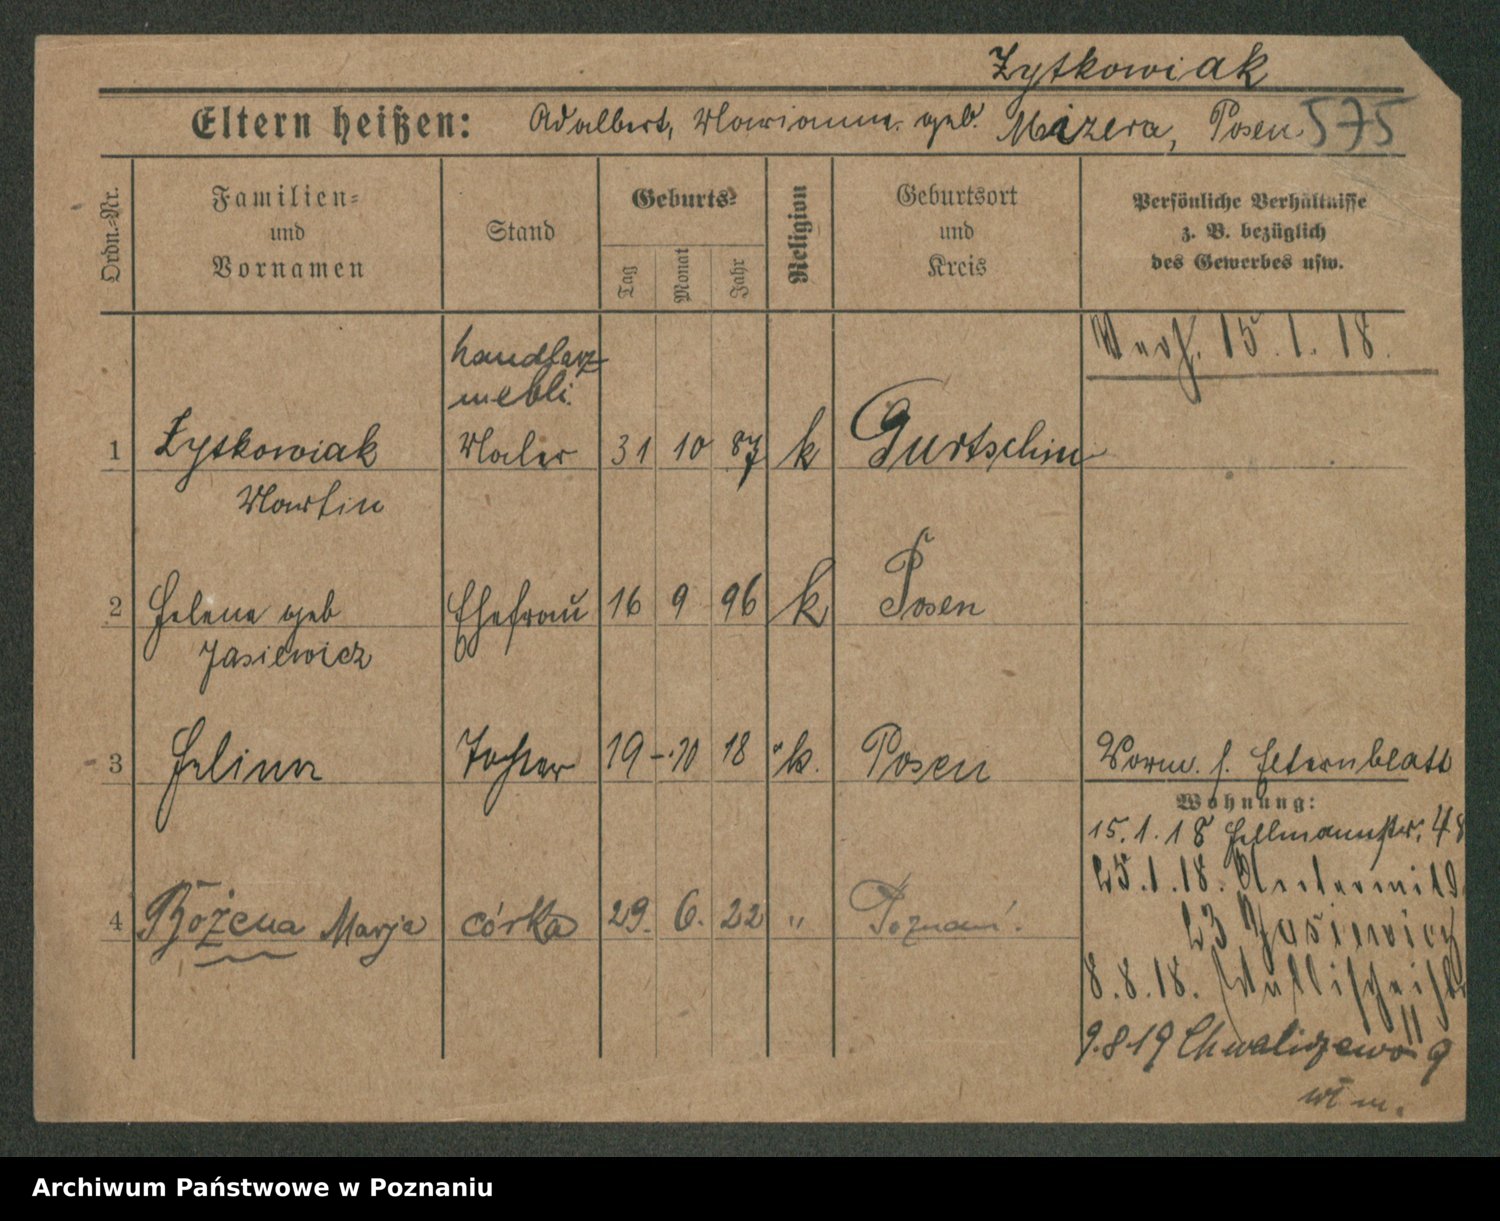 Zytkowiak
Eltern heißen: Adalbert, Marianna geb. Mizera, Posen. 575
Ordn.=Nr.
Familien=
und
Vornamen
Stand
Geburts=
Tag
Monat
Jahr
Religion
Geburtsort
und
Kreis
Persönliche Verhältnisse
z. B. bezüglich
des Gewerbes usw.
15.1.18.
handlarz
mebli.
1 Zytkowiak Maler 31 10 87 k Gurtschin
Martin
2 Helene geb Ehefrau 16 9 96 k Posen
Jasiewicz
3 Halina Tochter 19 10 18 k. Posen Vorm. s. Elternblatt
Wohnung:
15.1.18 Hellmannstr. 48
25.1.18.
4 Bożena Marja córka 29. 6. 22 " Poznań.
23 Jasiewicz
8.8.18. Wallischei
11
9.8.19 Chwaliszewo 9
wł. m.
Archiwum Państwowe w Poznaniu